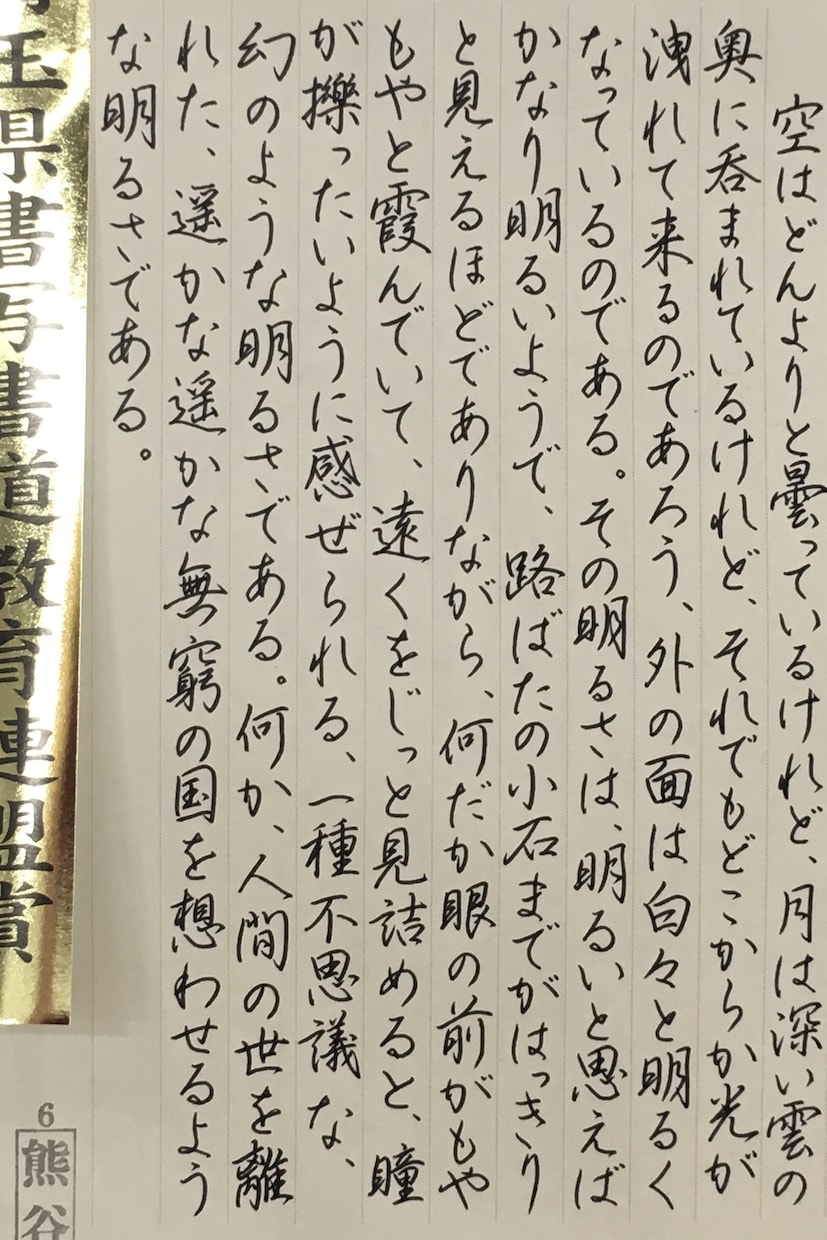 空はどんよりと曇っているけれど、月は深い雲の
奥に呑まれているけれど、それでもどこからか光が
洩れて来るのであろう、外の面は白々と明るく
なっているのである。その明るさは、明るいと思えば
かなり明るいようで、路ばたの小石までがはっきり
と見えるほどでありながら、何だか眼の前がもや
もやと霞んでいて、遠くをじっと見詰めると、瞳
が擽ったいように感ぜられる、一種不思議な、
幻のような明るさである。何か、人間の世を離
れた、遥かな遥かな無窮の国を想わせるよう
な明るさである。
玉県書写書道教育連盟賞
6
熊谷